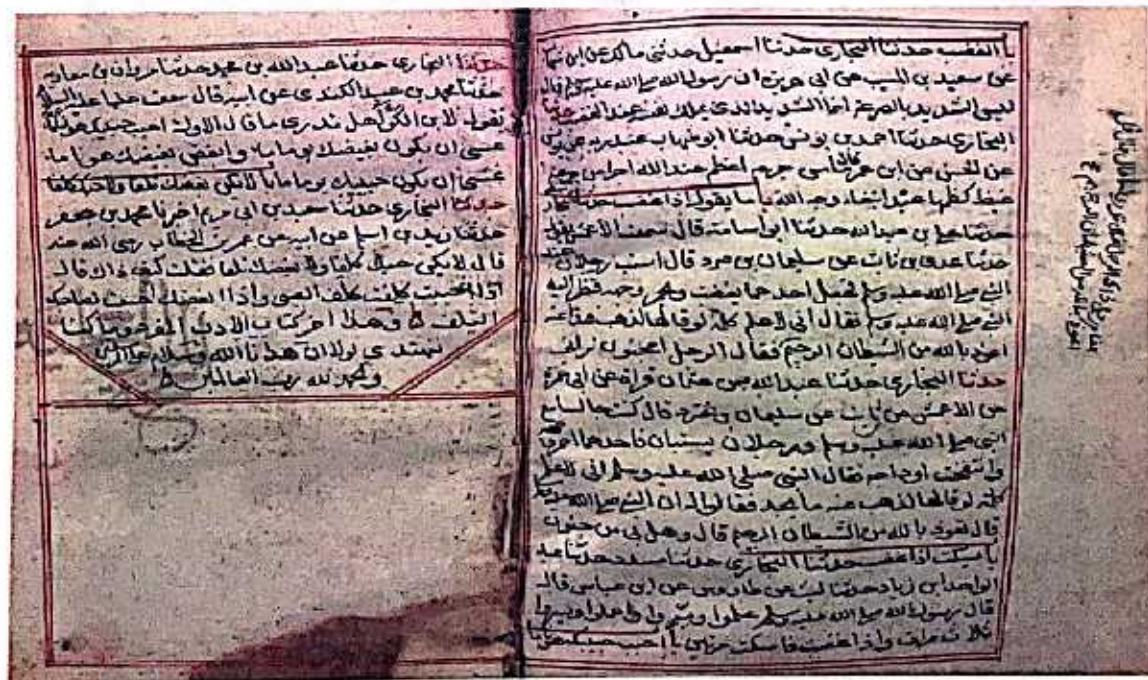 باب الغضب حدثنا البخاري حدثنا اسمعيل حدثني مالك عن ابن شهاب
عن سعيد بن المسيب عن ابي هريرة ان رسول الله صلى الله عليه وسلم قال
ليس الشديد بالصرعة انما الشديد الذي يملك نفسه عند الغضب حدثنا
البخاري حدثنا احمد بن يونس حدثنا ابو شهاب عبد ربه عن يونس
عن الحسن عن ابن عمر قال ما من جرعة اعظم عند الله اجرا من جرعة
غيظ كظمها عبد ابتغاء وجه الله باب ما يقول اذا غضب حدثنا
حدثنا علي بن عبد الله حدثنا ابو اسامة قال سمعت الاعمش يقول
حدثنا عدي بن ثابت عن سليمان بن صرد قال استب رجلان عند
النبي صلى الله عليه وسلم فجعل احدهما يغضب ويحمر وجهه فنظر اليه
النبي صلى الله عليه وسلم فقال اني لاعلم كلمة لو قالها لذهب هذا عنه
اعوذ بالله من الشيطان الرجيم فقال الرجل امجنون تراني
حدثنا البخاري حدثنا عبد الله بن عثمان قراة عن ابي حمزة
عن الاعمش عن ثابت عن سليمان بن صرد قال كنت جالسا مع
النبي صلى الله عليه وسلم ورجلان يستبان فاحدهما احمر
وانتفخت اوداجه فقال النبي صلى الله عليه وسلم اني لاعلم
كلمة لو قالها لذهب عنه ما يجد فقالوا له ان النبي صلى الله عليه وسلم
قال تعوذ بالله من الشيطان الرجيم قال وهل بي من جنون
باب يسكت اذا غضب حدثنا البخاري حدثنا مسدد حدثنا عبد
الواحد بن زياد حدثنا ليث عن طاووس عن ابن عباس قال
قال رسول الله صلى الله عليه وسلم علموا ويسروا علموا ويسروا
ثلاث مرات واذا غضبت فاسكت مرتين باب احبب حبيبك هونا
حدثنا البخاري حدثنا عبد الله بن محمد حدثنا مروان بن معاوية
حدثنا محمد بن عبيد الكندي عن ابيه قال سمعت عليا عليه السلام
يقول لابن الكوا هل تدري ما قال الاول احبب حبيبك هونا ما
عسى ان يكون بغيضك يوما ما وابغض بغيضك هونا ما
عسى ان يكون حبيبك يوما ما باب لا يكن بغضك تلفا ولا حبك كلفا
حدثنا البخاري حدثنا سعيد بن ابي مريم اخبرنا محمد بن جعفر
حدثنا زيد بن اسلم عن ابيه عن عمر بن الخطاب رضي الله عنه
قال لا يكن حبك كلفا ولا بغضك تلفا فقلت كيف ذاك قال
اذا احببت كلفت كلف الصبي واذا ابغضت احببت لصاحبك
التلف وهذا اخر كتاب الادب المفرد وما كنا
لنهتدي لولا ان هدانا الله وسلام على المرسلين
والحمد لله رب العالمين